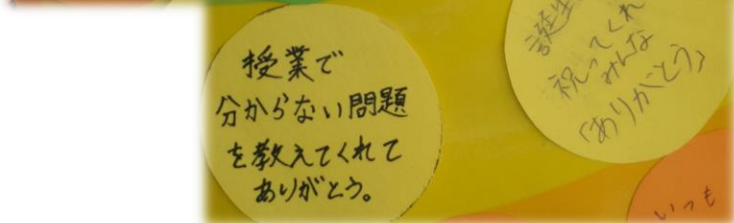 授業で
分からない問題
を教えてくれて
ありがとう。
誕生
祝ってくれ
みんな
「ありがとう」
いつも